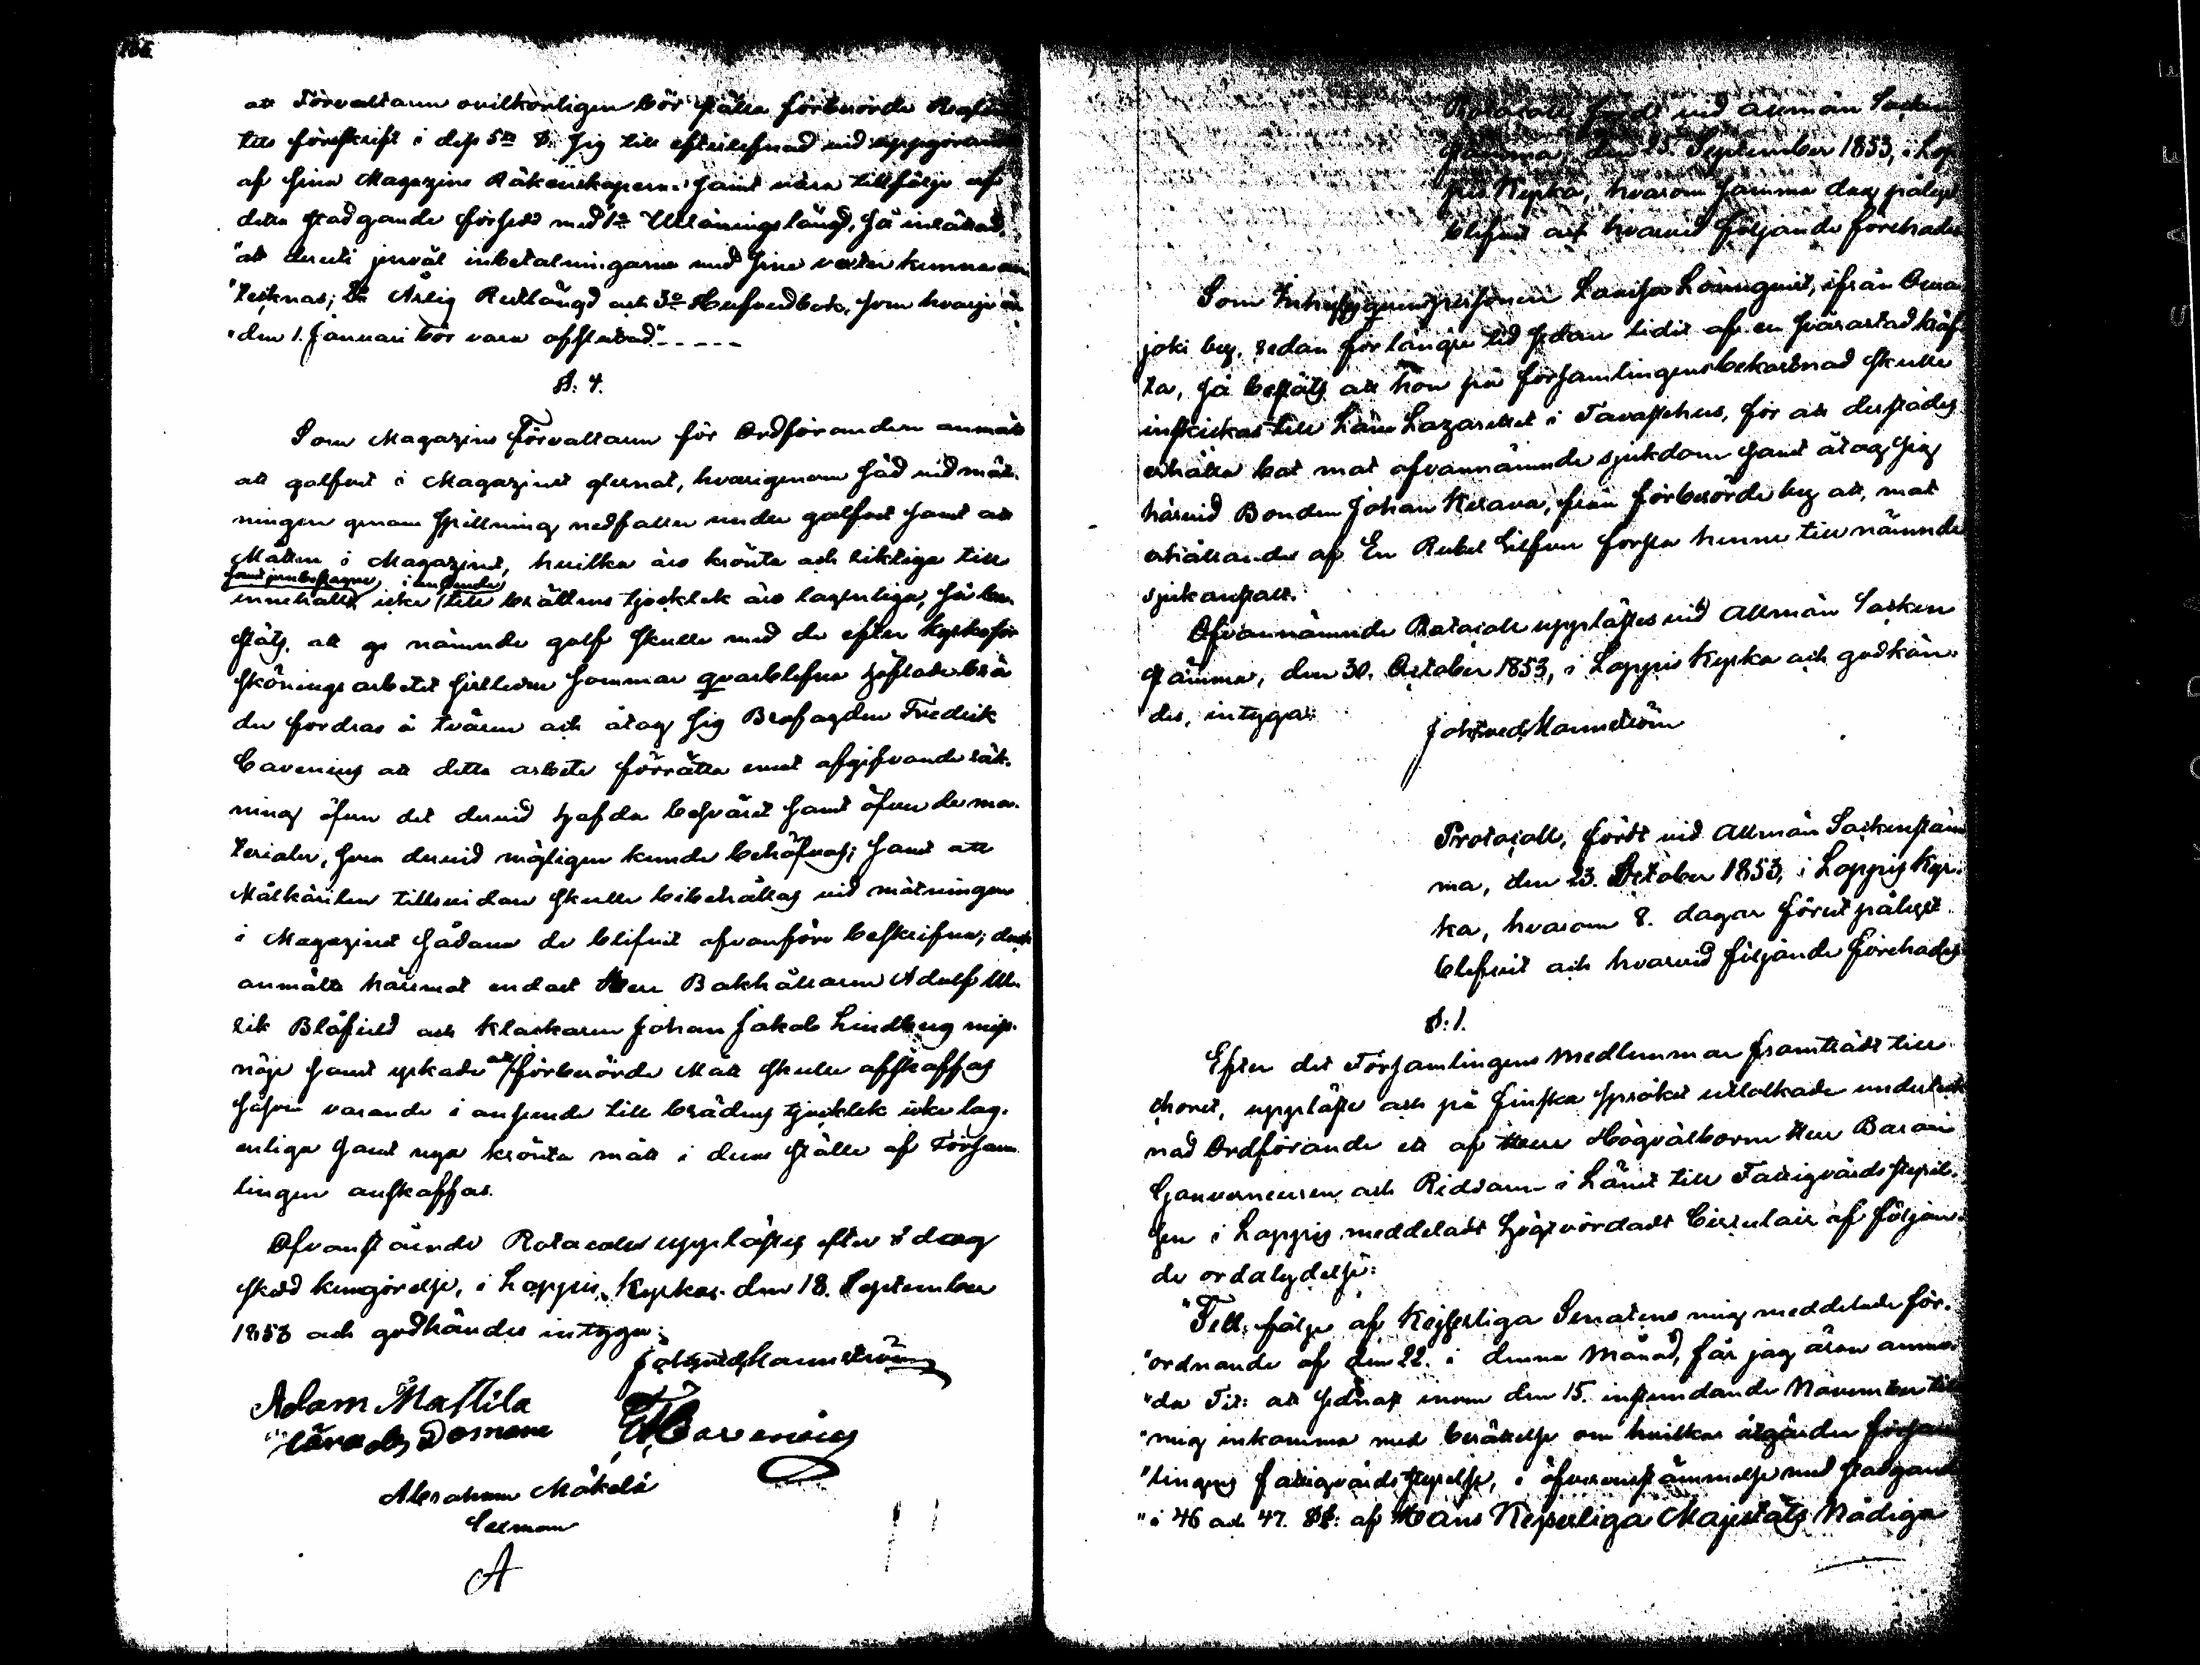 att Förvaltaren ovilkorligen bör ställa förberörde
till föreskrift i dess 5te §. sig till efterlefnad vid uppgörandet
af sina Magazins Räkenskaperne samt vara tillfölje af
detta stadgande försedd med 1o Utlåningslängd, så inrättad,
"att deruti jemväl inbetalningarne med sine vexter kunna an-
"tecknas; 2o Årlig Restlängd och 3o Hufvudbok, som hvarje år
"den 1. Januari bör vara afslutad". - - - - -
§. 4.
Som Magazins Förvaltaren för Ordföranden anmält
att golfvet i Magazinet glesnat, hvarigenom säd vid mät-
ningen genom spillning nedfaller under golfvet samt att
Måtten i Magazinet, hvilka äro krönta och riktiga till
samt jernbeslagne i anseende
innehållet icke till brädens tjocklek äro lagenliga, så be-
slöts, att nämnde golf skulle med de efter kyrkoför-
sköningsarbetet sistledne sommar qvarblefne brä-
der fordras å tvären och åtog sig Brofogden Fredrik
Cavenius att detta arbete förrätta emot afgifvande räk-
ning öfver det dervid hafda besväret samt öfver de ma-
terialer, som dervid möjligen kunde behöfvas; samt att
Målkärilen tillsvidare skulle bibehållas vid mätningen
i Magazinet sådane de blifvit ofvanföre beskrifne; dock
anmälte häremot endast Herr Bokhållaren Adolf Ul-
rik Blåfield och Klockaren Johan Jakob Lindberg miss-
nöje samt yrkade att förberörde Mått skulle afskaffas
såsom varande i anseende till brädens tjocklek icke lag-
enliga samt nya krönta mått i deras ställe af Försam-
lingen anskaffas.
Ofvanstående Protocoller upplästes efter i dag
skedd kungörelse, i Loppis Kyrka den 18. September
1853 och godkändes intyga:
Joh: Mannström
Adam Mattila
Cavenius
Abraham Mäkelä
Salman
A
Protocoll, fördt vid Allmän Socken
stämma, den 25. September 1853, i Lop-
pis Kyrka, hvarom samma dag pålyst
blifvit och hvarvid följande förehades
Som Inhysesqvinspersonen Lovisa Lönnqvist, ifrån
joki by, redan för längre tid sedan lidit af en svårartad kräf-
ta, så beslöts att hon på församlingens bekostnad skulle
inskickas till Läns Lazarettet i Tavastehus, för att derstädes
erhålla bot mot ofvannämnde sjukdom samt åtog sig
härvid Bonden Johan Kerava, från förberörde by att, mot
erhållande af En Rubel Silfver forsla henne till nämnde
sjukanstalt.
Ofvannämnde Protocoll upplästes vid Allmän Socken
stämma, den 30. October 1853, i Loppis Kyrka och godkän-
des, intygar:
Joh: Mannström
Protocoll, fördt vid Allmän Sockenstäm-
ma, den 23. October 1853, i Loppis Kyr-
ka, hvarom 8. dagar förut pålyst
blifvit och hvarvid följande förehades
§. 1.
Efter det Församlingens Medlemmar framträdt till
choret, uppläste och på finska språket uttolkade underteck-
nad Ordförande ett af Herr Högvälborne Herr Baron
Gouverneuren och Riddaren i Länet till Fattigvårdsstyrel-
sen i Loppis meddeladt högtvördadt Circulair af följan-
de ordalydelse:
"Till följe af Kejserliga Senatens mig meddelade för-
"ordnande af den 22. i denna Månad, får jag äran anmo-
"da Tit: att sednast inom den 15. instundande November till
"mig inkomma med berättelse om hvilka åtgärder försam-
"lingens fattigvårdsstyrelse, i öfverensstämmelse med stadgande
"i 46 och 47. §§: af Hans Kejserliga Majestäts Nådiga